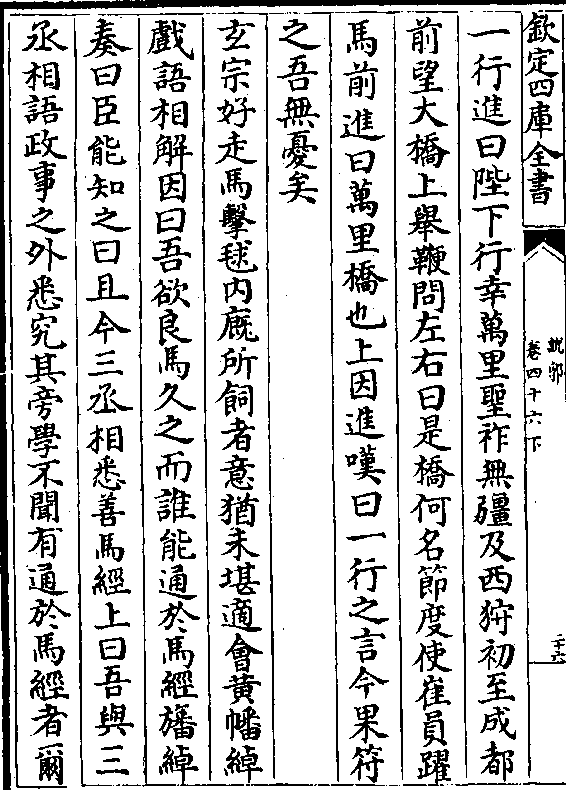 欽定四庫全書
說郛
卷四十六下
二十六
一行進曰陛下行幸萬里聖祚無疆及西狩初至成都
前望大橋上舉鞭問左右曰是橋何名節度使崔員躍
馬前進曰萬里橋也上因進嘆曰一行之言今果符
之吾無憂矣
玄宗好走馬擊毬內廐所飼者意猶未堪適會黃幡綽
戲語相解因曰吾欲良馬久之而誰能通於馬經旛綽
奏曰臣能知之曰且今三丞相悉善馬經上曰吾與三
丞相語政事之外悉究其旁學不聞有通於馬經者爾